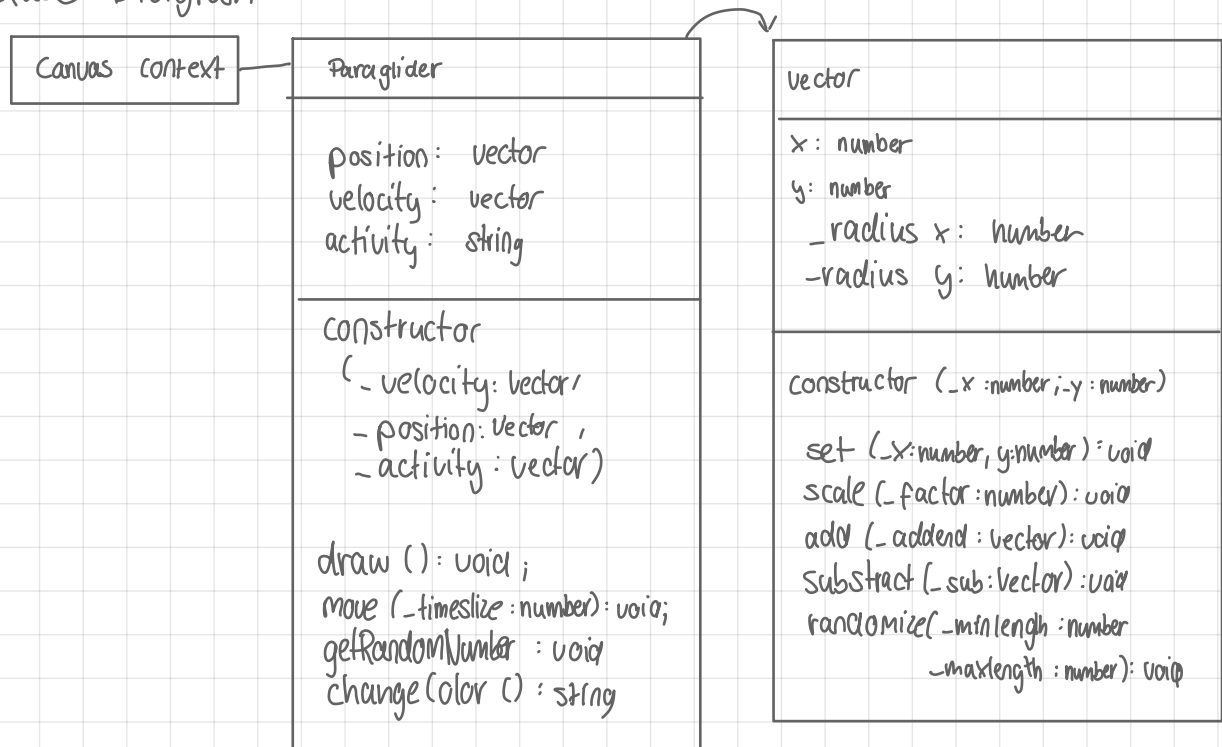 Class Diagram
Canvas context
Paraglider
position: vector
velocity: vector
activity: string
constructor
(_velocity: vector,
_position: vector,
_activity: vector)
draw (): void;
move (_timeslize: number): void;
getRandomNumber : void
changeColor (): string
vector
x: number
y: number
_radius x: number
_radius y: number
constructor (_x :number; _y : number)
set (_x:number, y:number): void
scale (_factor:number): void
add (_addend : vector): void
substract (_sub: Vector): void
randomize(_minlength : number
_maxlength : number): void